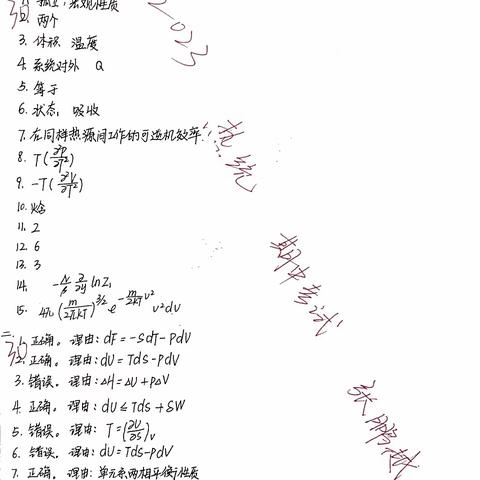 1. 孤立；宏观性质
2. 两个
3. 体积 温度
4. 系统对外 Q
5. 等于
6. 状态，吸收
7. 在同样热源间工作的可逆机效率
8. T(∂²P/∂T²)
9. -T(∂²V/∂T²)
10. 焓
11. 2
12. 6
13. 3
14. -N/β ∂/∂y lnZ₁
15. 4π(m/2πkT)^3/2 e^-m/2kT v² v²dv
二、1. 正确。理由：dF=-SdT-PdV
2. 正确。理由：dU=TdS-PdV
3. 错误。理由：ΔH=ΔU+PΔV
4. 正确。理由：dU≤TdS+δW
5. 错误。理由：T=(∂U/∂S)v
6. 错误。理由：dU=TdS-PdV
7. 正确。理由：单元系两相平衡性质
2023
热统
期中考试
张鹏